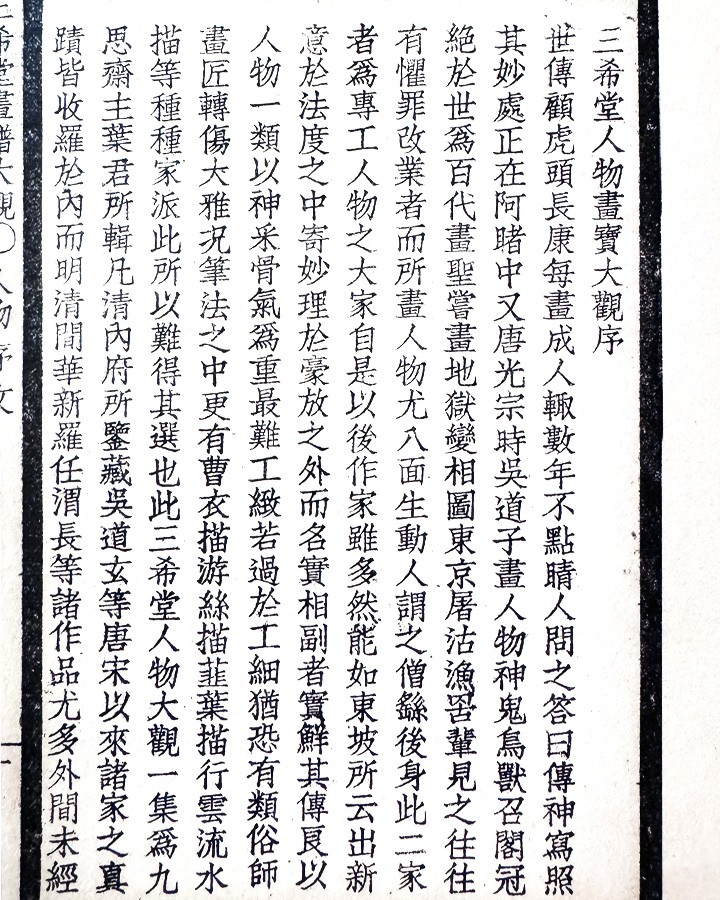 三希堂人物畫寶大觀序
世傳顧虎頭長康每畫成人輙數年不點睛人問之答曰傳神寫照
其妙處正在阿睹中又唐光宗時吳道子畫人物神鬼鳥獸召閣冠
絕於世爲百代畫聖嘗畫地獄變相圖東京屠沽漁罟輩見之往往
有懼罪改業者而所畫人物尤八面生動人謂之僧繇後身此二家
者爲專工人物之大家自是以後作家雖多然能如東坡所云出新
意於法度之中寄妙理於豪放之外而名實相副者實鮮其傳艮以
人物一類以神采骨氣爲重最難工緻若過於工細猶恐有類俗師
畫匠轉傷大雅况筆法之中更有曹衣描游絲描韮葉描行雲流水
描等種種家派此所以難得其選也此三希堂人物大觀一集爲九
思齋主葉君所輯凡清內府所鑒藏吳道玄等唐宋以來諸家之真
蹟皆收羅於內而明清間華新羅任渭長等諸作品尤多外間未經
三希堂畫譜大觀〇人物 序文
一